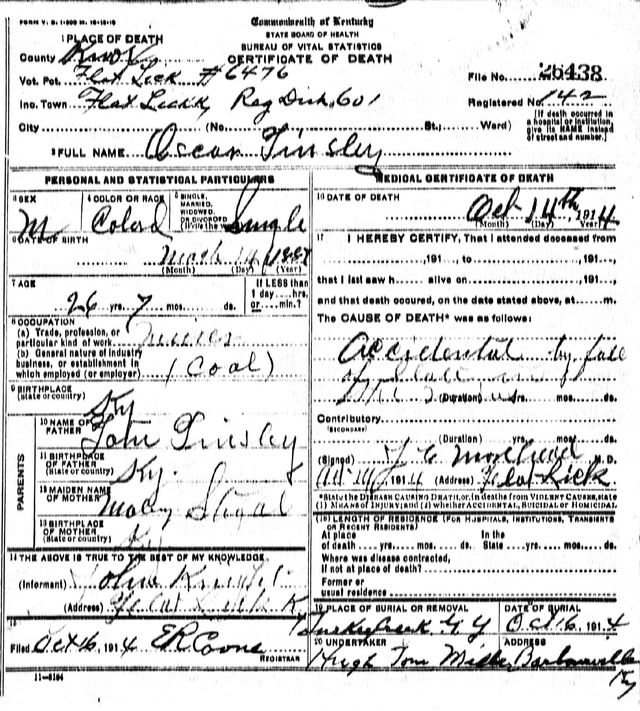 FORM V. S. 1-200 M. 10-18-10
Commonwealth of Kentucky
STATE BOARD OF HEALTH
BUREAU OF VITAL STATISTICS
CERTIFICATE OF DEATH
1 PLACE OF DEATH
County Knox
Vot. Pct. Flat Lick #6476
File No. 26438
Inc. Town Flat Lick, Reg Dist, 601
Registered No. 142
City (No. St.; Ward)
[If death occurred in a hospital or institution, give its NAME instead of street and number.]
2 FULL NAME Oscar Tinsley
PERSONAL AND STATISTICAL PARTICULARS
3 SEX M
4 COLOR OR RACE Colord
5 SINGLE, MARRIED, WIDOWED, OR DIVORCED (Write the word) Single
6 DATE OF BIRTH
March 14 1887
(Month) (Day) (Year)
7 AGE
If LESS than 1 day ... hrs. or ... min.?
26 yrs. 7 mos. ds.
8 OCCUPATION
(a) Trade, profession, or particular kind of work Miner
(b) General nature of industry business, or establishment in which employed (or employer) (Coal)
9 BIRTHPLACE
(State or country) Ky
PARENTS
10 NAME OF FATHER John Tinsley
11 BIRTHPLACE OF FATHER (State or country) Ky.
12 MAIDEN NAME OF MOTHER
13 BIRTHPLACE OF MOTHER (State or country) Ky
14 THE ABOVE IS TRUE TO THE BEST OF MY KNOWLEDGE
(Informant) John
(Address) Flat Lick K
15
Filed Oct 16, 1914 ER Coone
REGISTRAR
11-8184
MEDICAL CERTIFICATE OF DEATH
16 DATE OF DEATH
Oct 14th, 1914
(Month) (Day) (Year)
17 I HEREBY CERTIFY, That I attended deceased from
, 191..., to , 191...,
that I last saw h alive on , 191...,
and that death occured, on the date stated above, at m.
The CAUSE OF DEATH* was as follows:
Accidental by fall
of Slate
(Duration) yrs. mos. ds.
Contributory
(SECONDARY)
(Duration) yrs. mos. ds.
(Signed) M. D.
1914 (Address) Flat Lick
*State the DISEASE CAUSING DEATH, or, in deaths from VIOLENT CAUSES, state (1) MEANS OF INJURY; and (2) whether ACCIDENTAL, SUICIDAL or HOMICIDAL.
(18) LENGTH OF RESIDENCE (FOR HOSPITALS, INSTITUTIONS, TRANSIENTS OR RECENT RESIDENTS)
At place of death yrs. mos. ds. In the State yrs. mos. ds.
Where was disease contracted, if not at place of death?
Former or usual residence
19 PLACE OF BURIAL OR REMOVAL
DATE OF BURIAL
Oct 16, 1914
20 UNDERTAKER
ADDRESS
Hugh Tom Barbourville
Ky